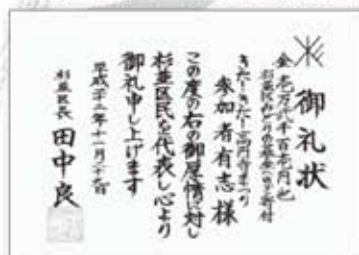 御礼状
金 壱万弐千百壱円也
杉並区みどりの基金への寄付
きた!きた!高円寺まつり
参加者有志様
この度の右の御厚情に対し
杉並区民を代表し心より
御礼申し上げます
平成二十二年十一月
杉並区長 田中良